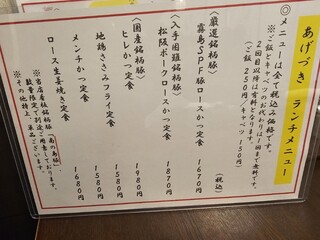 あげづき ランチメニュー
◎メニューは全て税込み価格です。
※ご飯とキャベツのお代わりは1回まで無料です。
2回目以降は有料となります。
(ご飯 250円/キャベツ 150円)
(税込)
〈厳選銘柄豚〉
霧島SPF豚ロースかつ定食 1670円
〈入手困難銘柄豚〉
松阪ポークロースかつ定食 1870円
〈国産銘柄豚〉
ヒレかつ定食 1980円
地鶏ささみフライ定食 1580円
メンチかつ定食 1580円
ロース生姜焼き定食 1680円
※宮崎産銘柄豚「南の島豚」
数量限定で別途ご用意しております。
※その他単品もございます。